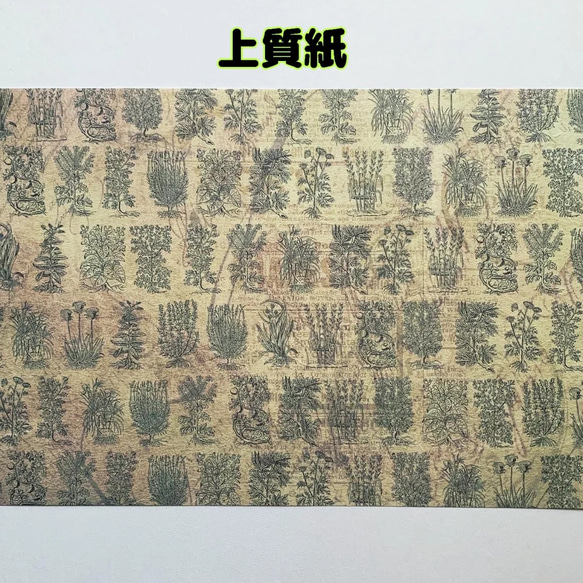 上質紙